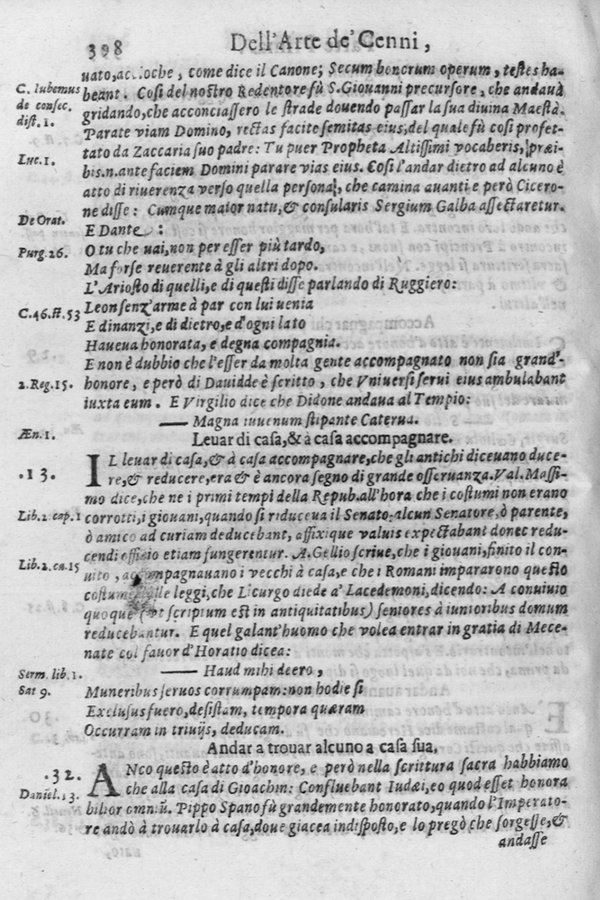 398 Dell'Arte de' Cenni,
uato, accioche, come dice il Canone; Secum bonorum operum, testes ha-
C. Iubemus
beant. Cosi del nostro Redentore fù S. Giouanni precursore, che andaua
de consec.
gridando, che acconciassero le strade douendo passar la sua diuina Maestà.
dist. 1.
Parate viam Domino, rectas facite semitas eius, del quale fù cosi profet-
tato da Zaccaria suo padre: Tu puer Propheta Altissimi vocaberis, præi-
Luc. 1.
bis.n.ante faciem Domini parare vias eius. Cosi l'andar dietro ad alcuno è
atto di riuerenza verso quella persona, che camina auanti e però Cicero-
ne disse: Cumque maior natu, & consularis Sergium Galba assectaretur.
De Orat.
E Dante:
O tu che uai, non per esser più tardo,
Purg. 26.
Ma forse reuerente à gli altri dopo.
L'Ariosto di quelli, e di questi disse parlando di Ruggiero:
Leon senz'arme à par con lui uenia
C. 46. st. 53
E dinanzi, e di dietro, e d'ogni lato
Haueua honorata, e degna compagnia.
E non è dubbio che l'esser da molta gente accompagnato non sia grand'-
honore, e però di Dauidde è scritto, che Vniuersi serui eius ambulabant
2. Reg. 15.
iuxta eum. E Virgilio dice che Didone andaua al Tempio:
— Magna iuuenum stipante Caterua.
Æn. 1.
Leuar di casa, & à casa accompagnare.
.13.
IL leuar di casa, & à casa accompagnare, che gli antichi diceuano duce-
re, & reducere, era & è ancora segno di grande osseruanza. Val. Massi-
mo dice, che ne i primi tempi della Repub. all'hora che i costumi non erano
Lib. 2. cap. 1
corrotti, i giouani, quando si reduceua il Senato, alcun Senatore, ò parente,
ò amico ad curiam deducebant, affixique valuis expectabant donec redu-
cendi officio etiam fungerentur. A. Gellio scriue, che i giouani, finito il con-
Lib. 2. ca. 15
uito, accompagnauano i vecchi à casa, e che i Romani impararono questo
costume dalle leggi, che Licurgo diede a' Lacedemoni, dicendo: A conuiuio
quoque (vt scriptum est in antiquitatibus) seniores à iunioribus domum
reducebantur. E quel galant'huomo che volea entrar in gratia di Mece-
nate col fauor d'Horatio dicea:
— Haud mihi deero,
Serm. lib. 1.
Muneribus seruos corrumpam: non hodie si
Sat 9.
Exclusus fuero, desistam, tempora quæram
Occurram in triuijs, deducam.
Andar a trouar alcuno a casa sua,
.32.
ANco questo è atto d'honore, e però nella scrittura sacra habbiamo
che alla casa di Gioachin: Confluebant Iudæi, eo quod esset honora
Daniel. 13.
bilior omniũ. Pippo Spano fù grandemente honorato, quando l'Imperato-
re andò à trouarlo à casa, doue giacea indisposto, e lo pregò che sorgesse, &
andasse